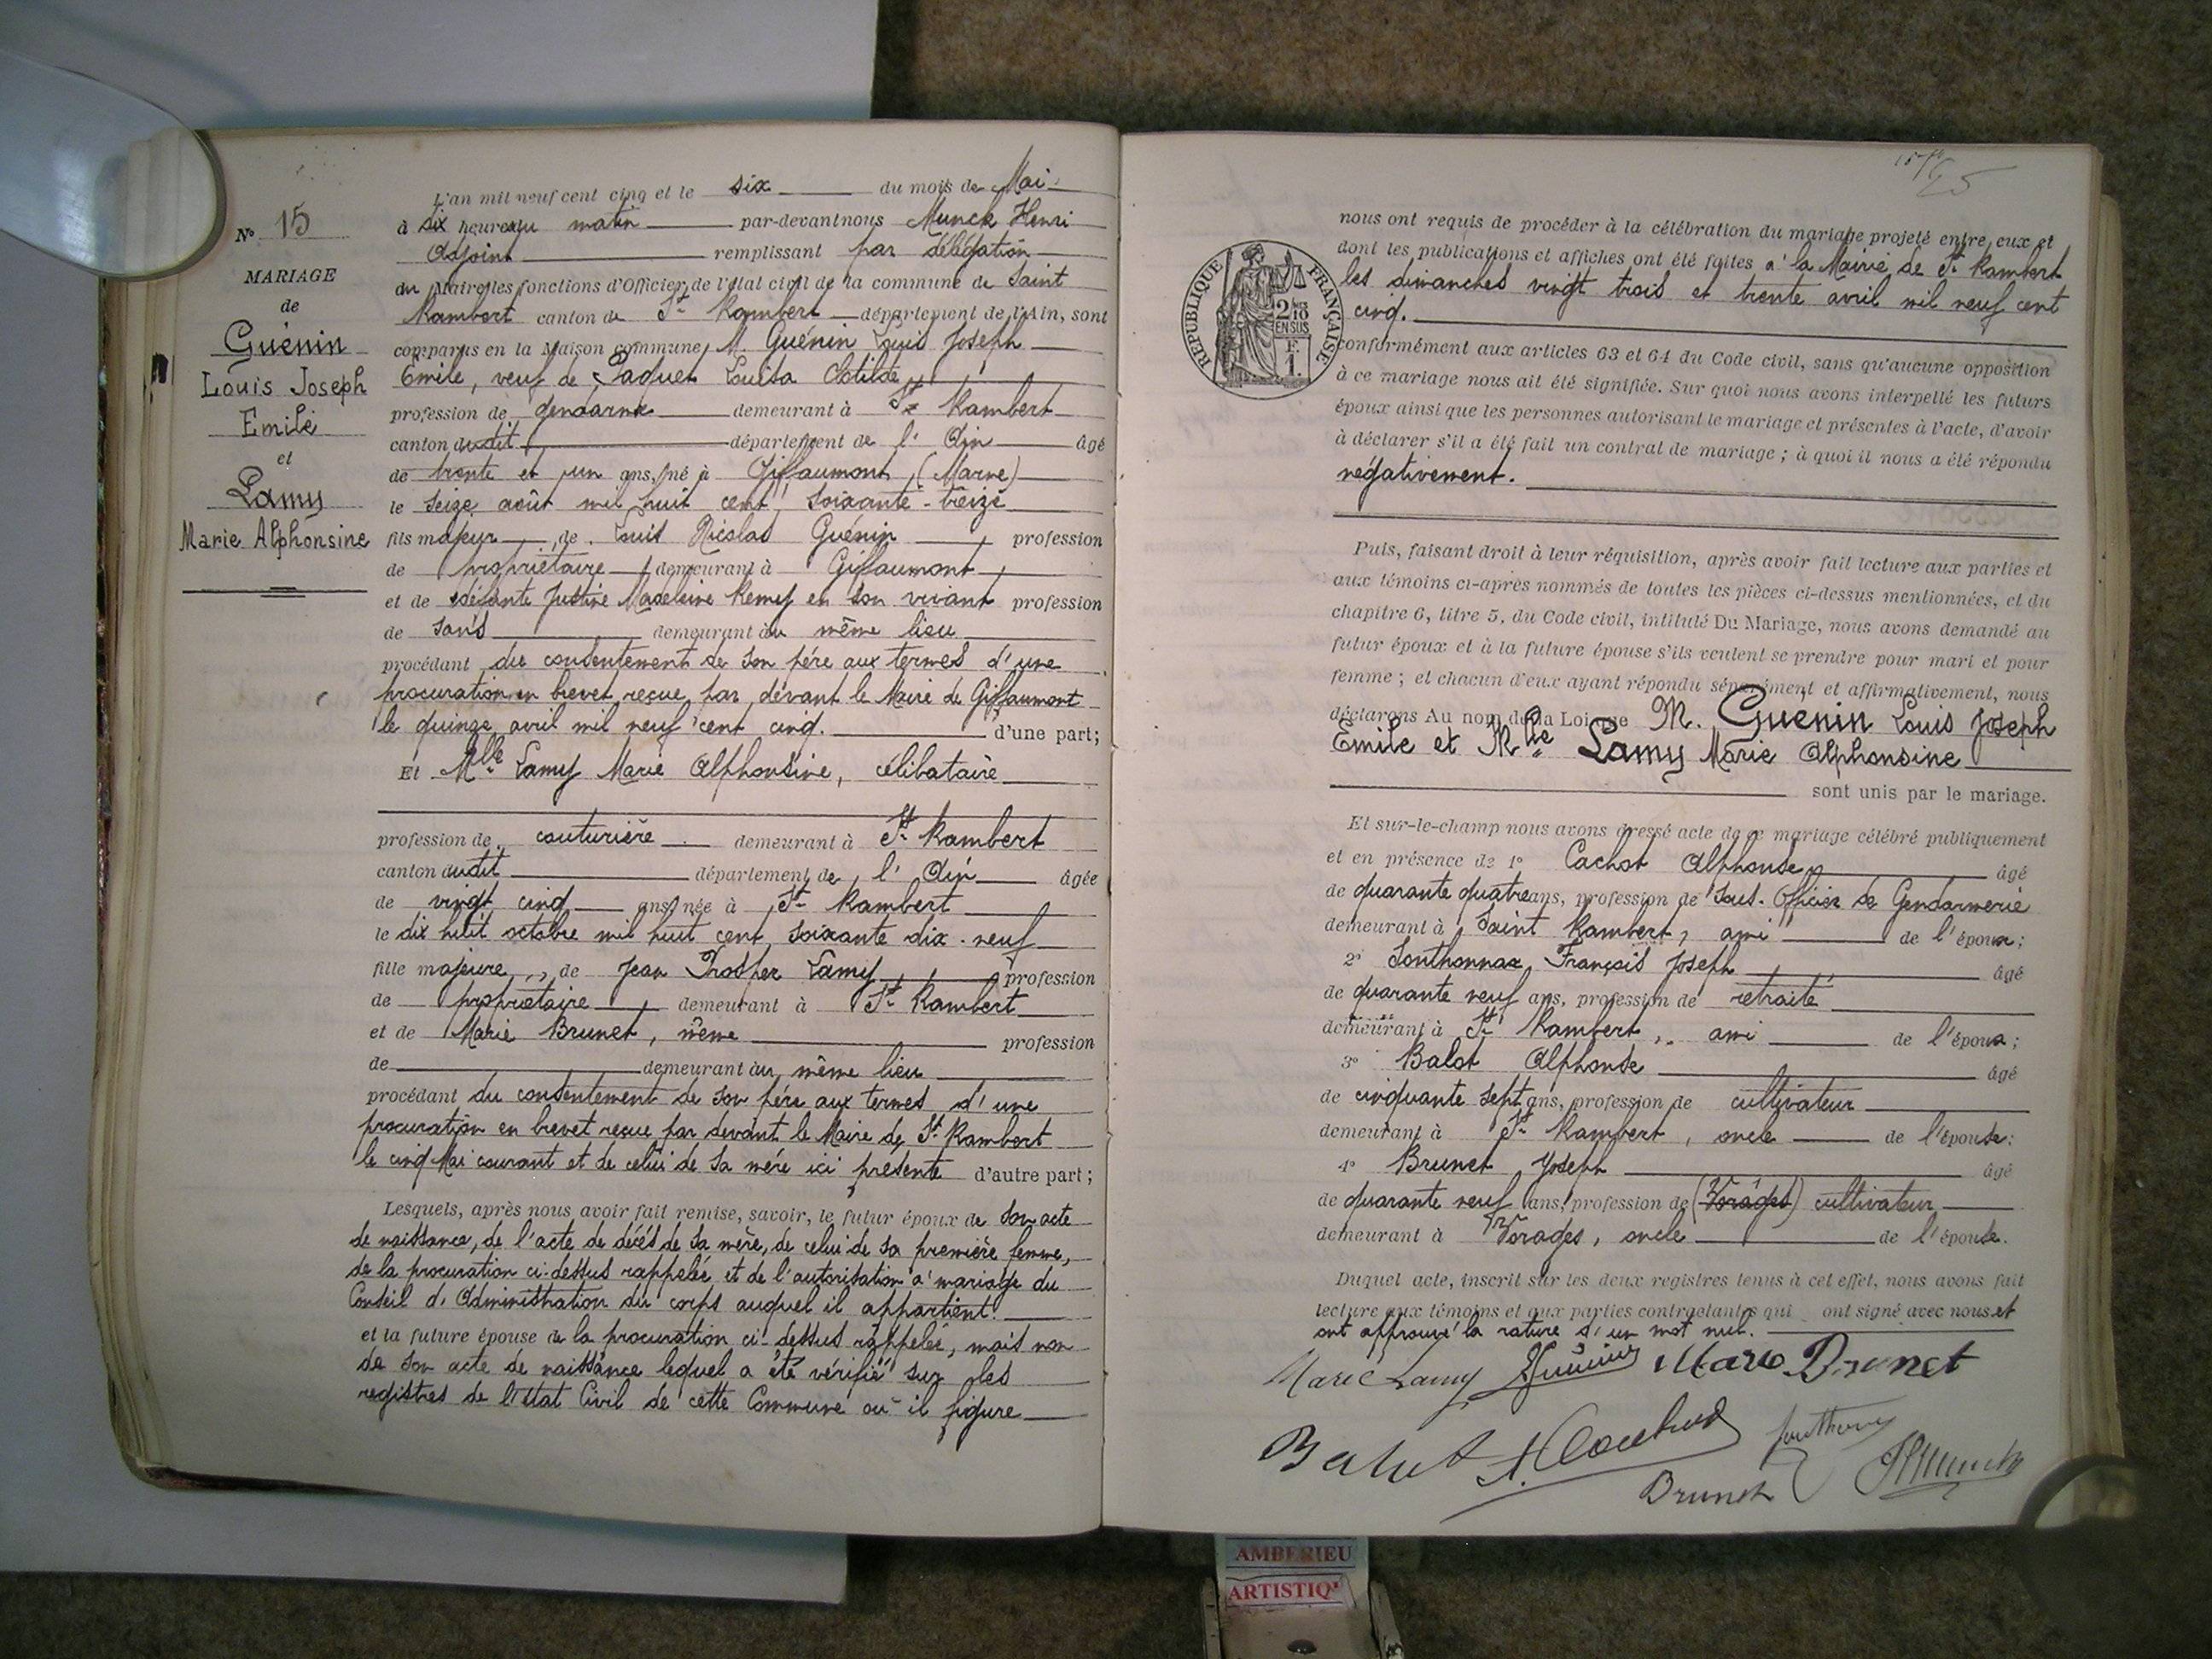 N° 15
MARIAGE
de
Guénin
Louis Joseph
Emile
et
Lamy
Marie Alphonsine
L'an mil neuf cent cinq et le six du mois de Mai
à dix heures du matin par-devant nous Munck Henri
Adjoint remplissant par délégation
du Maire les fonctions d'Officier de l'Etat civil de la commune de Saint
Rambert canton de St Rambert département de l'Ain, sont
comparus en la Maison commune, M. Guénin Louis Joseph
Emile, veuf de Paquet Louisa Clotilde
profession de gendarme demeurant à St Rambert
canton dudit département de l'Ain âgé
de trente et un ans, né à Giffaumont, (Marne)
le seize août mil huit cent soixante-treize
fils majeur de Louis Nicolas Guénin profession
de propriétaire demeurant à Giffaumont
et de défunte Justine Madeleine Remy en son vivant profession
de sans demeurant au même lieu
procédant du consentement de son père aux termes d'une
procuration en brevet reçue par devant le Maire de Giffaumont
le quinze avril mil neuf cent cinq. d'une part;
Et Mlle Lamy Marie Alphonsine, célibataire
profession de couturière demeurant à St Rambert
canton dudit département de l'Ain âgée
de vingt cinq ans, née à St Rambert
le dix huit octobre mil huit cent soixante dix-neuf
fille majeure, de Jean Prosper Lamy, profession
de propriétaire demeurant à St Rambert
et de Marie Brunet, même profession
de demeurant au même lieu
procédant du consentement de son père aux termes d'une
procuration en brevet reçue par devant le Maire de St Rambert
le cinq Mai courant et de celui de sa mère ici présente d'autre part;
Lesquels, après nous avoir fait remise, savoir, le futur époux de son acte
de naissance, de l'acte de décès de sa mère, de celui de sa première femme,
de la procuration ci-dessus rappelée et de l'autorisation à mariage du
Conseil d'Administration du corps auquel il appartient.
et la future épouse de la procuration ci-dessus rappelée, mais non
de son acte de naissance lequel a été vérifié sur les
registres de l'Etat Civil de cette Commune où il figure
nous ont requis de procéder à la célébration du mariage projeté entre eux et
dont les publications et affiches ont été faites à la Mairie de St Rambert
les dimanches vingt trois et trente avril mil neuf cent
cinq.
RÉPUBLIQUE FRANÇAISE
2/10
EN SUS
F.
1.
conformément aux articles 63 et 64 du Code civil, sans qu'aucune opposition
à ce mariage nous ait été signifiée. Sur quoi nous avons interpellé les futurs
époux ainsi que les personnes autorisant le mariage et présentes à l'acte, d'avoir
à déclarer s'il a été fait un contrat de mariage; à quoi il nous a été répondu
négativement.
Puis, faisant droit à leur réquisition, après avoir fait lecture aux parties et
aux témoins ci-après nommés de toutes les pièces ci-dessus mentionnées, et du
chapitre 6, titre 5, du Code civil, intitulé Du Mariage, nous avons demandé au
futur époux et à la future épouse s'ils veulent se prendre pour mari et pour
femme; et chacun d'eux ayant répondu séparément et affirmativement, nous
déclarons Au nom de la Loi que M. Guenin Louis Joseph
Emile et Mlle Lamy Marie Alphonsine
sont unis par le mariage.
Et sur-le-champ nous avons dressé acte de ce mariage célébré publiquement
et en présence de 1° Cachot Alphonse âgé
de quarante quatre ans, profession de Sous-Officier de Gendarmerie
demeurant à Saint Rambert, ami de l'époux;
2° Sonthonnax François Joseph âgé
de quarante neuf ans, profession de retraité
demeurant à St Rambert, ami de l'époux;
3° Balot Alphonse âgé
de cinquante sept ans, profession de cultivateur
demeurant à St Rambert, oncle de l'épouse;
4° Brunet Joseph âgé
de quarante neuf ans, profession de (Vorages) cultivateur
demeurant à Vorages, oncle de l'épouse.
Duquel acte, inscrit sur les deux registres tenus à cet effet, nous avons fait
lecture aux témoins et aux parties contractantes qui ont signé avec nous et
ont approuvé la rature d'un mot nul.
Marie Lamy Guénin Marie Brunet
Balut A. Cachot Southonnax
Brunet HMunck
AMBERIEU
ARTISTIQ'